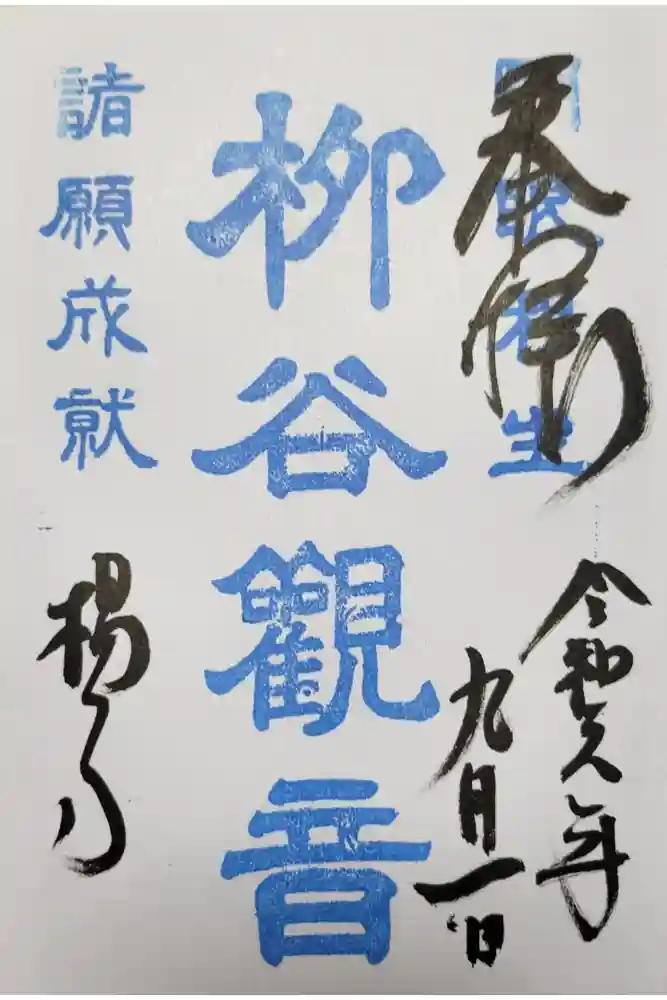 奉拝
眼利生
令和六年
九月一日
柳谷觀音
諸願成就
楊谷寺